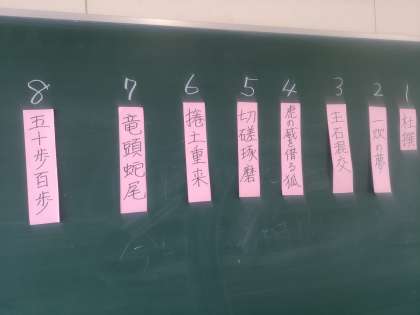 1
杜撰
2
一炊の夢
3
玉石混交
4
虎の威を借る狐
5
切磋琢磨
6
捲土重来
7
竜頭蛇尾
8
五十歩百歩